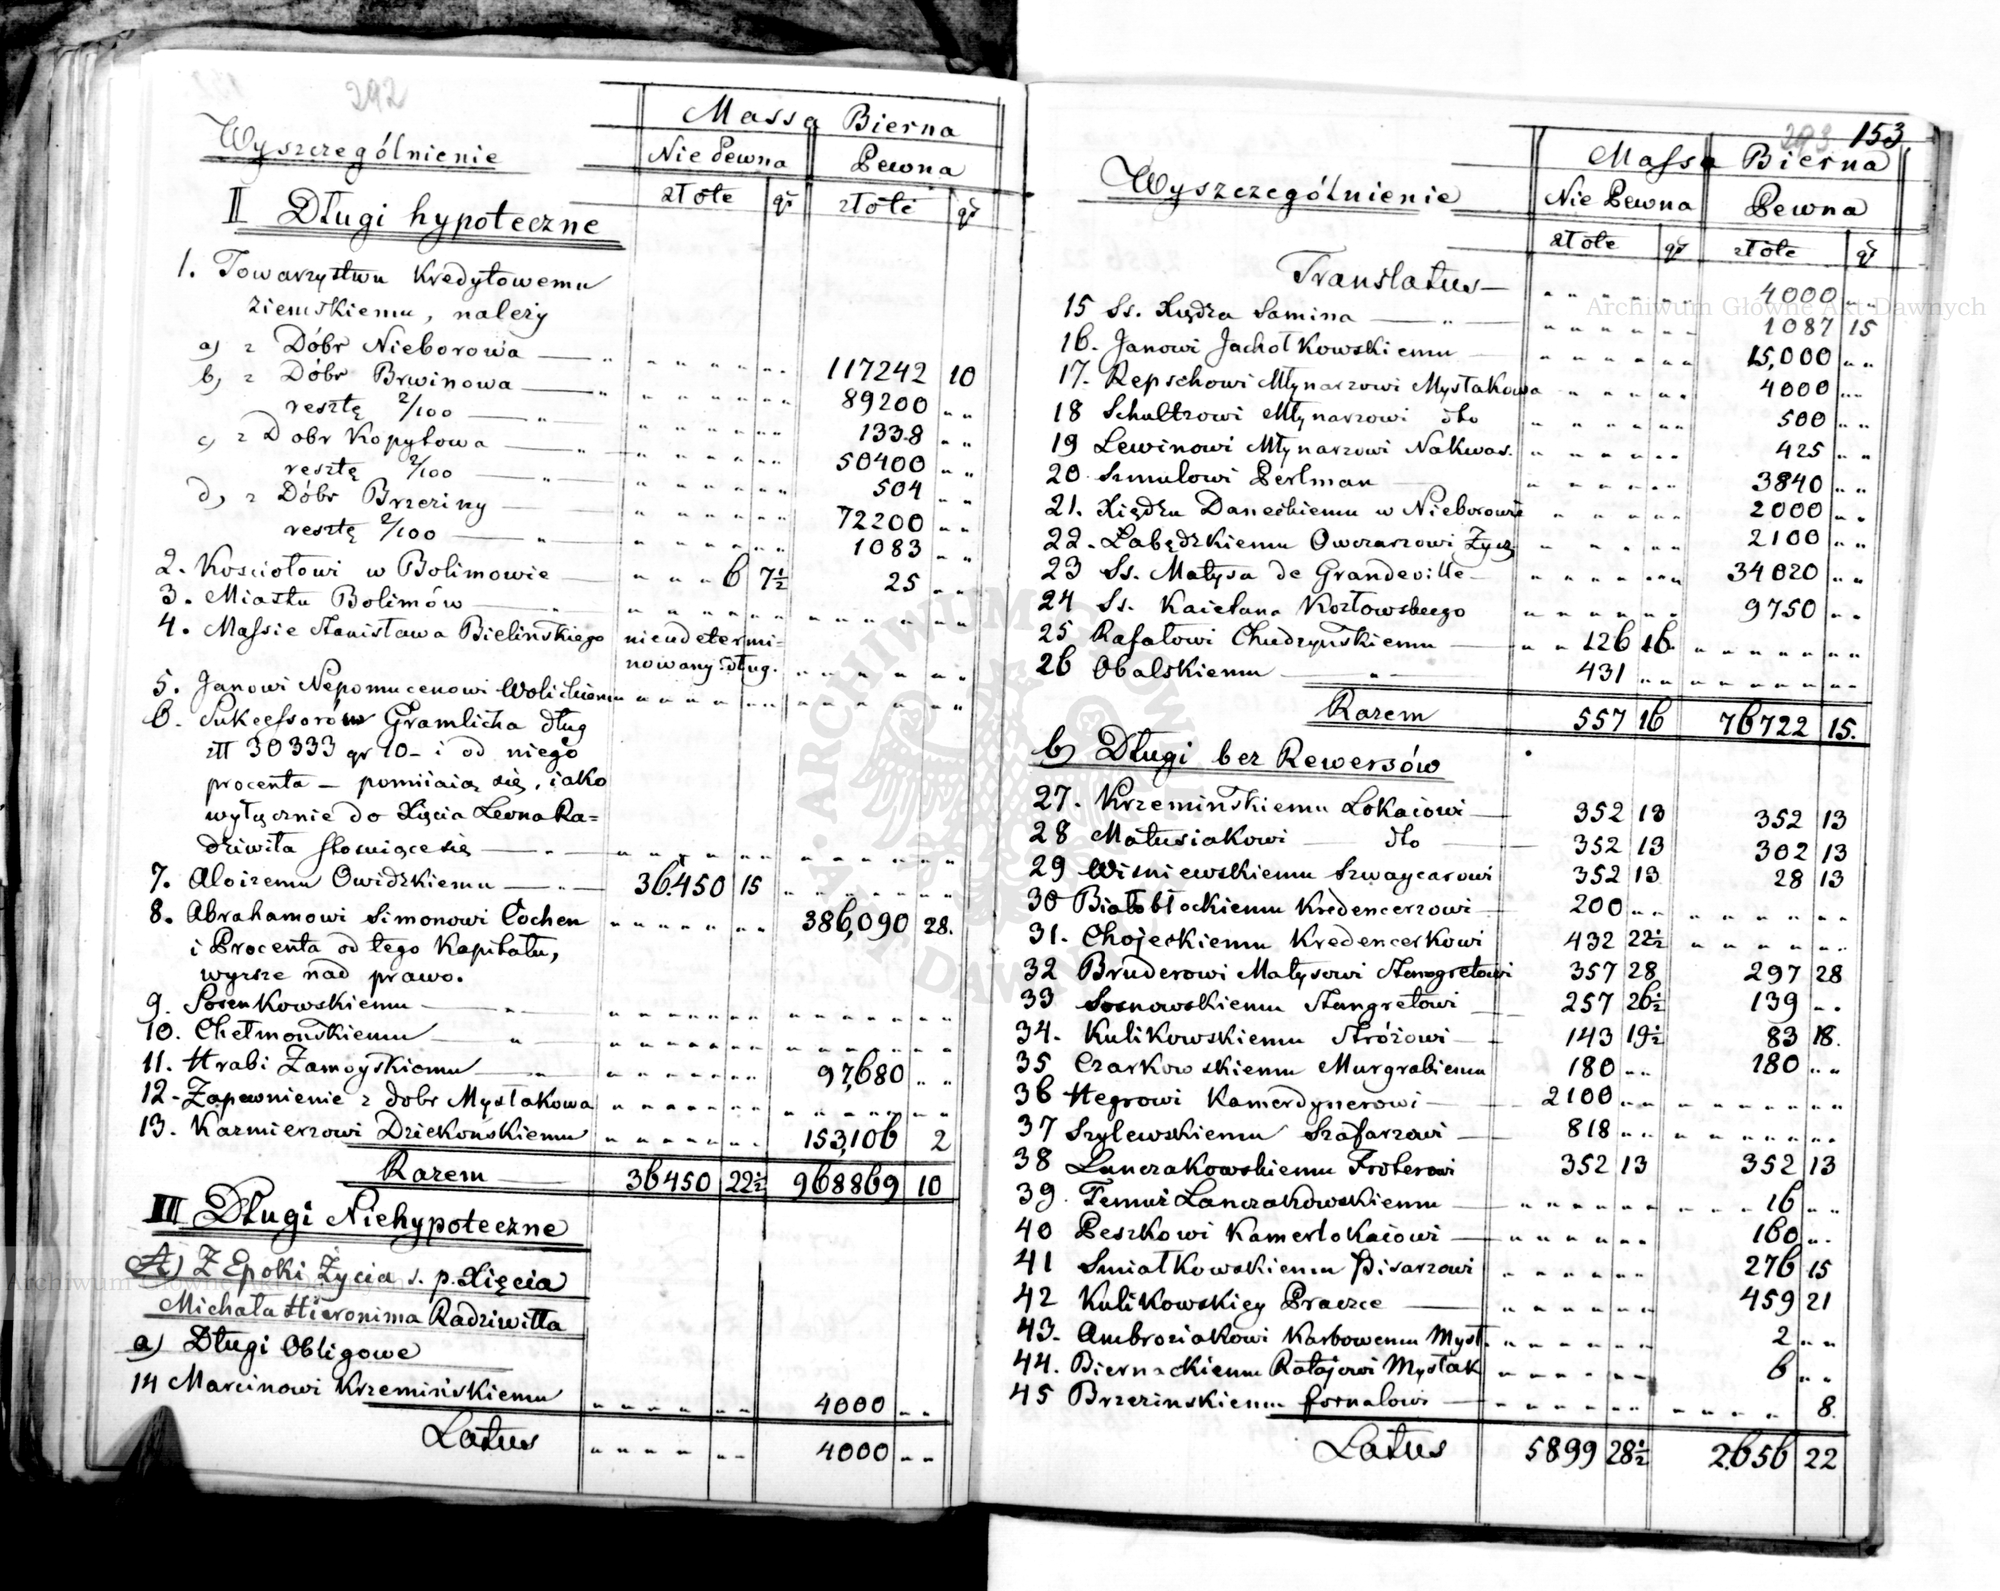 292
Massa Bierna
Wyszczególnienie Nie Pewna Pewna
złote gr złote gr
II Długi hypoteczne
1. Towarzystwu Kredytowemu
ziemskiemu, należy
a) z Dóbr Nieborowa — 117242 10
b) z Dóbr Brwinowa — 89200 " "
resztę 2/100 — 1338 " "
c) z Dobr Kopytowa — 50400 " "
resztę 2/100 — 504 " "
d) z Dóbr Brzeziny — 72200 " "
resztę 2/100 — 1083 " "
2. Kościołowi w Bolimowie — 6 7½ 25 " "
3. Miastu Bolimów —
4. Massie Stanisława Bielińskiego niendetermi=
nowany dług.
5. Janowi Nepomucenowi Wolickiemu
6. Sukcessorów Gramlicha dług
złł 30333 gr 10 – i od niego
procenta – pomiiaią się, iako
wyłącznie do Xięcia Leona Ra=
dziwiła stosuiące się —
7. Aloizemu Owidzkiemu — 36450 15
8. Abrahamowi Simonowi Cochen 386,090 28.
i Procenta od tego Kapitału,
wyższe nad prawo.
9. Sosenkowskiemu —
10. Chełmońskiemu —
11. Hrabi Zamoyskiemu — 97,680 " "
12. Zapewnienie z dobr Mysłakowa
13. Kazmierzowi Dziekońskiemu 153,106 2
Razem — 36450 22½ 968869 10
III Długi Niehypoteczne
A) Z Epoki Życia s. p. Xięcia
Michała Hieronima Radziwiłła
a) Długi Obligowe
14 Marcinowi Krzemińskiemu 4000 " "
Latus 4000 " "
293 153
Massa Bierna
Wyszczególnienie Nie Pewna Pewna
złote gr złote gr
Translatus — 4000 " "
15 Ss. Xiędza Samina — 1087 15
16. Janowi Jachołkowskiemu 15,000 " "
17. Repschowi Młynarzowi Mysłakowa 4000 " "
18 Schultzowi Młynarzowi dto 500 " "
19 Lewinowi Młynarzowi Nakwas. 425 " "
20. Szmulowi Perlman 3840 " "
21. Xiędzu Daneckiemu w Nieborowie 2000 " "
22. Łabędzkiemu Owczarzowi 2100 " "
23 Ss. Matysa de Grandeville — 34020 " "
24 Ss. Kaietana Kozłowskiego 9750 " "
25 Rafałowi Chudzyńskiemu — 126 16.
26 Obalskiemu — 431 " "
Razem 557 16 76722 15.
b) Długi bez Rewersów
27. Krzemińskiemu Lokaiowi — 352 13 352 13
28 Matusiakowi — dto — 352 13 302 13
29 Wiśniewskiemu Szwaycarowi 352 13 28 13
30 Białobłockiemu Kredencerzowi 200 " "
31. Choieckiemu Kredencerkowi 432 22½
32 Bruderowi Matysowi Stangretowi 357 28 297 28
33 Sosnowskiemu Stangretowi 257 26½ 139 " "
34. Kulikowskiemu Stróżowi — 143 19½ 83 18.
35 Czarkowskiemu Murgrabiemu 180 " " 180 " "
36 Hegrowi Kamerdynerowi — 2100 " "
37 Szylewskiemu Szafarzowi — 818 " "
38 Lanczakowskiemu Froterowi 352 13 352 13
39. Temuż Lanczakowskiemu — 16 " "
40 Peszkowi Kamerlokaiowi — 160 " "
41 Smiałkowskiemu Pisarzowi 276 15
42 Kulikowskiey Praczce — 459 21
43. Ambroziakowi Karbowemu Mysł. 2 " "
44. Biernackiemu Ratajowi Mysłak 6 " "
45 Brzezinskiemu fornalowi — 8.
Latus 5899 28½ 2656 22
Archiwum Główne Akt Dawnych
Archiwum Główne Akt Dawnych
ARCHIWUM GŁÓWNE AKT DAWNYCH